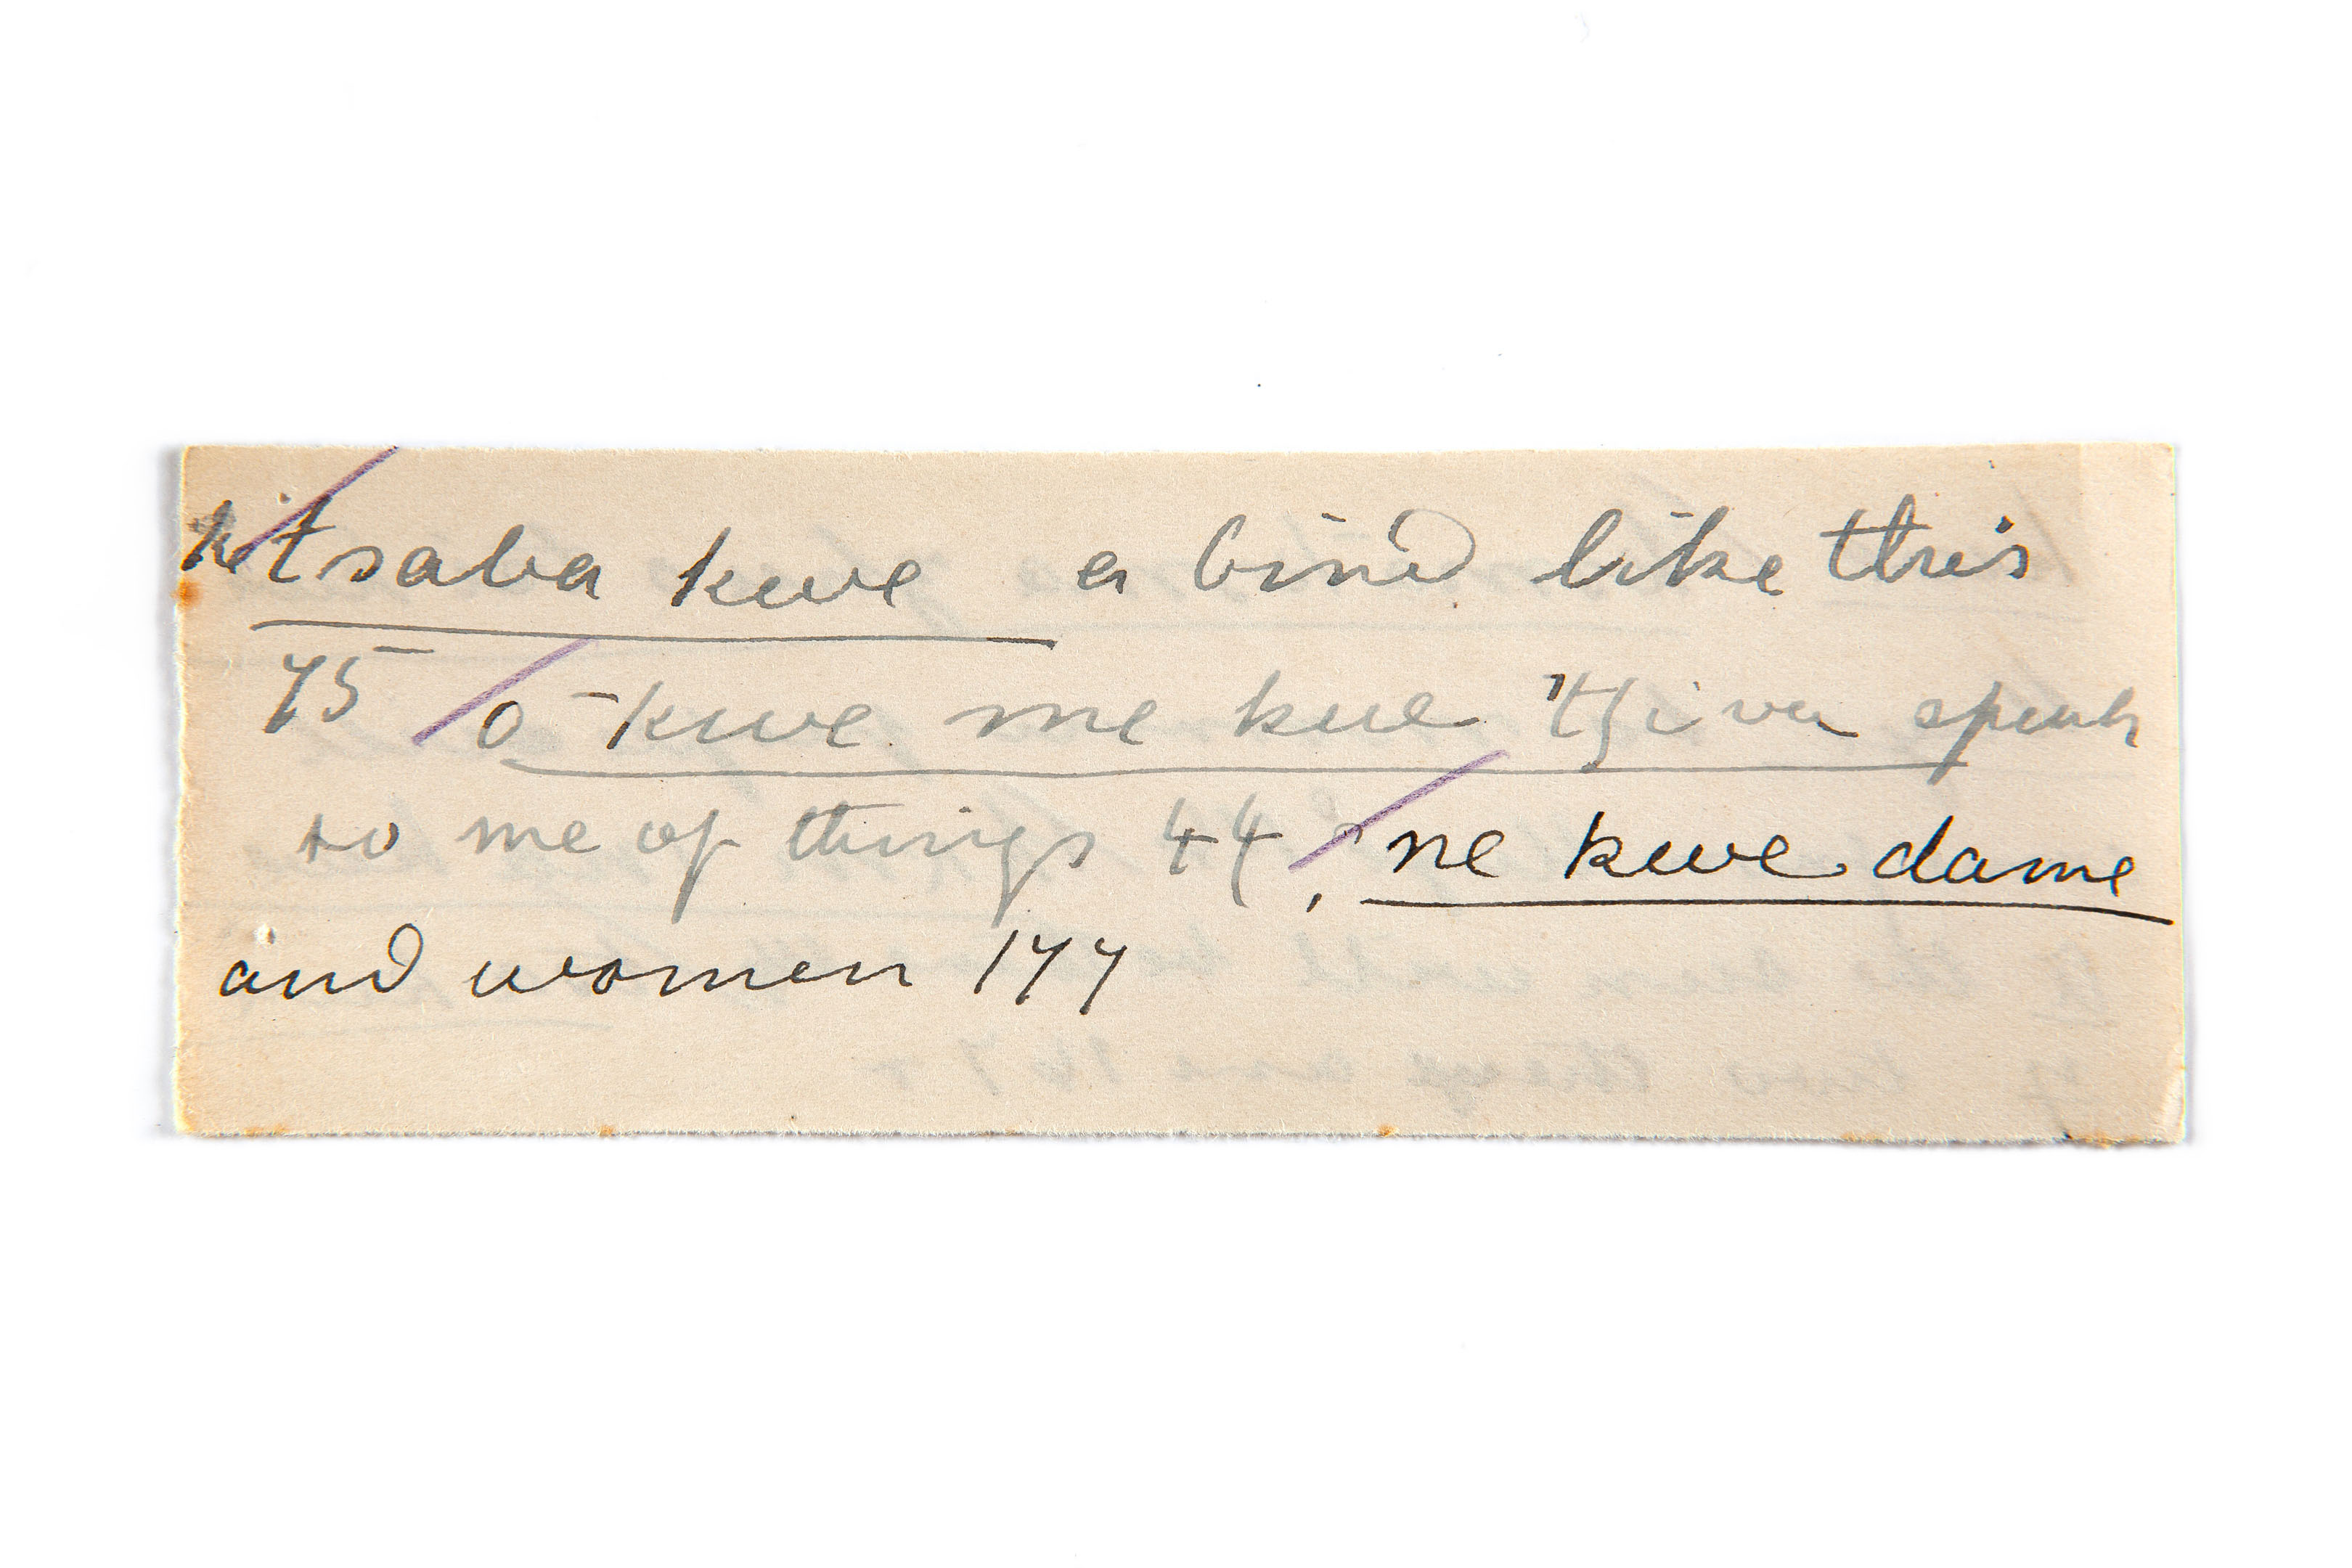 tsaba kwe a bird like this
75 o kwe me kue thiva speak
to me of things 44, ne kwe dame
and women 177